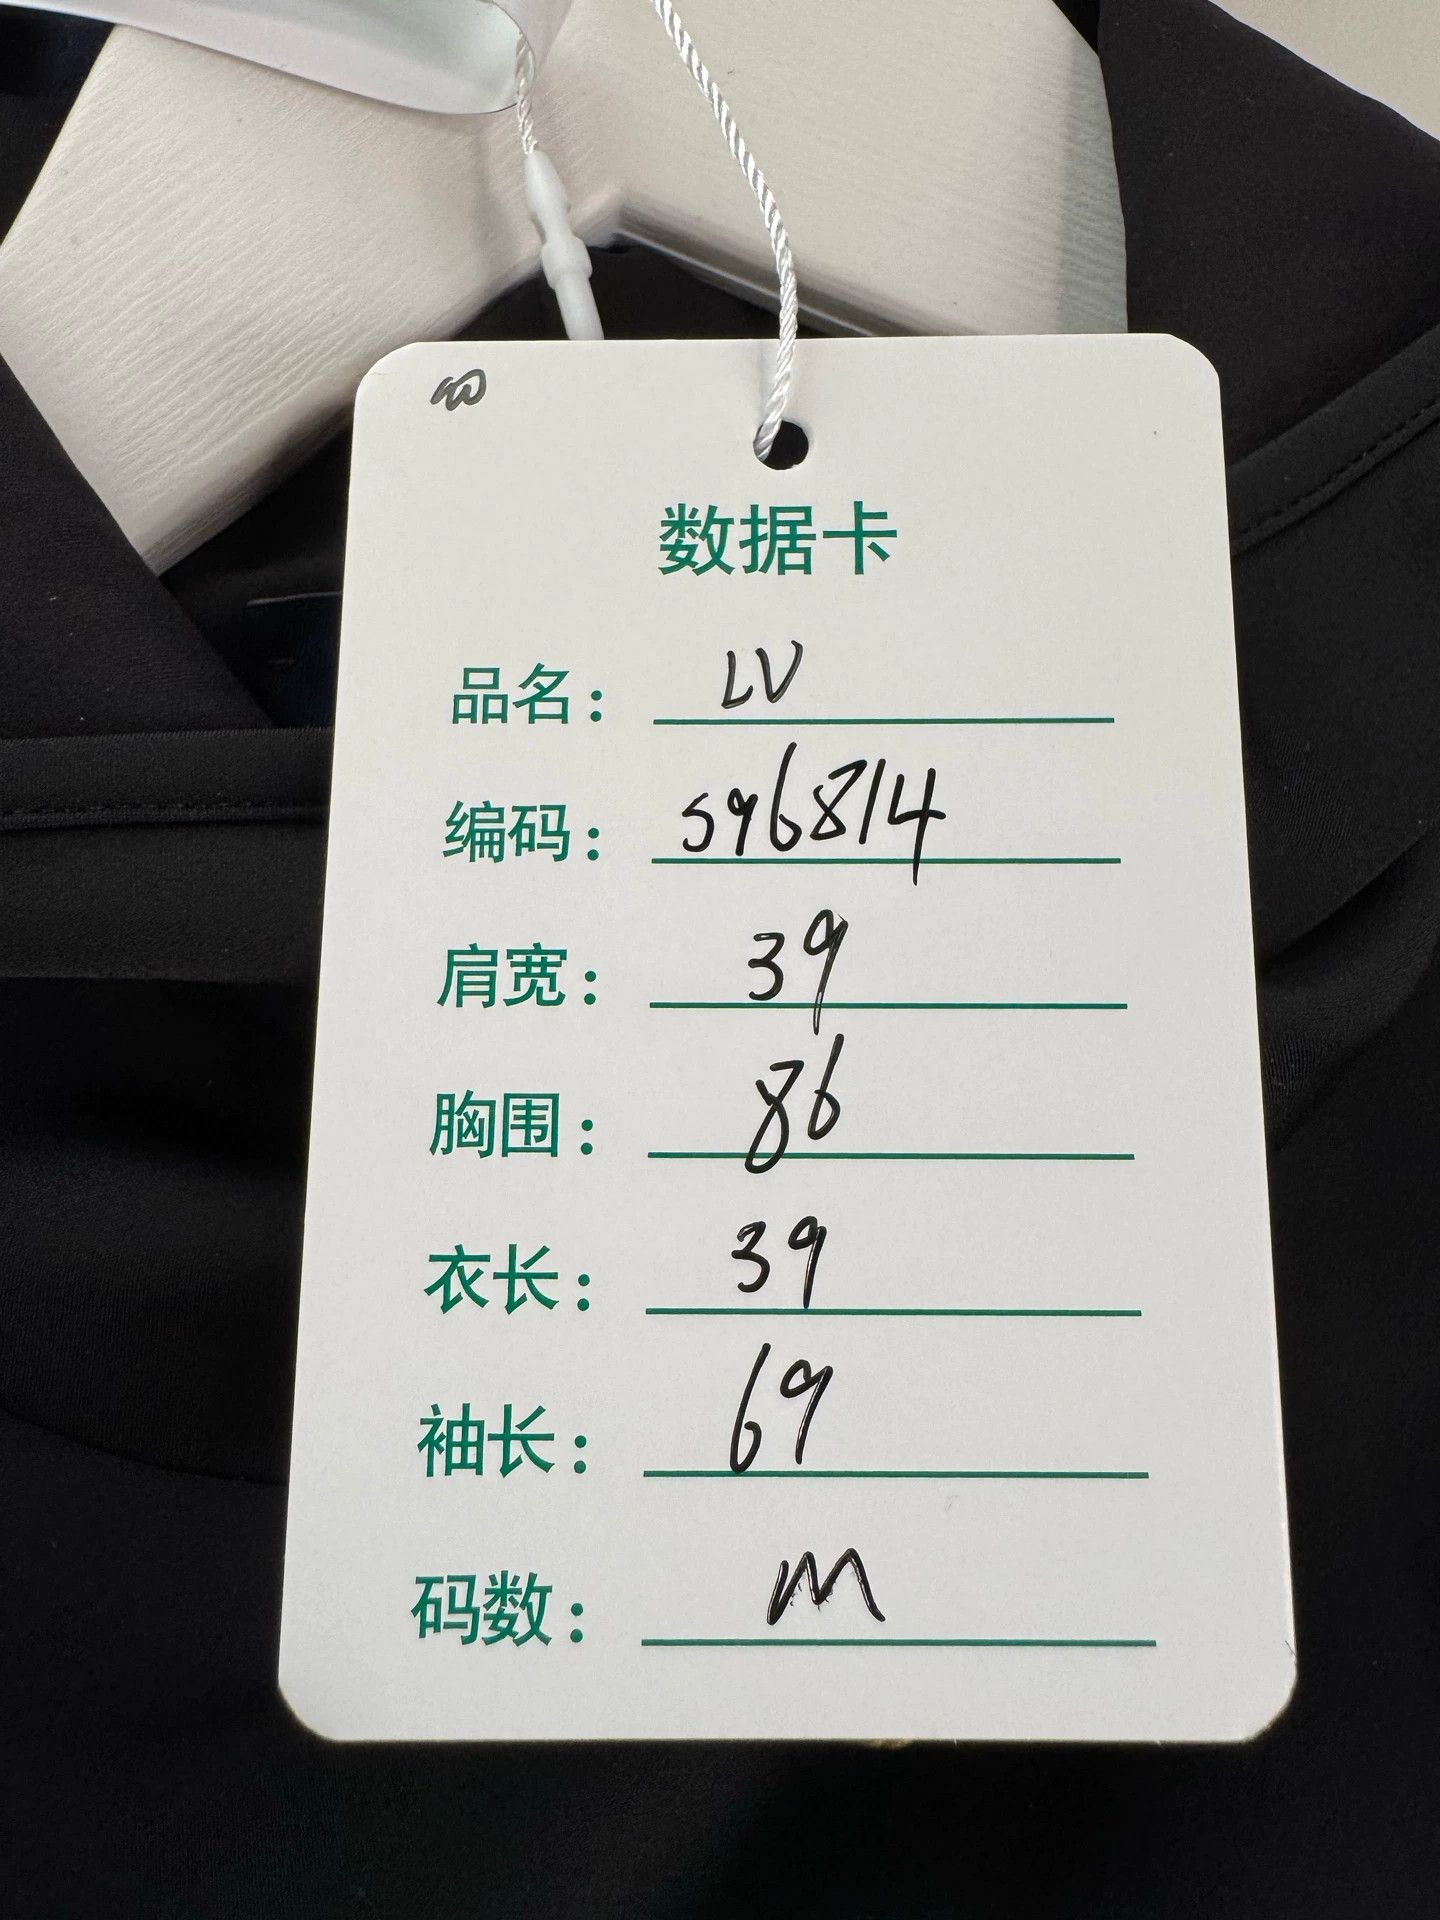 数据卡
品名： LV
编码： S96814
肩宽： 39
胸围： 86
衣长： 39
袖长： 69
码数： M